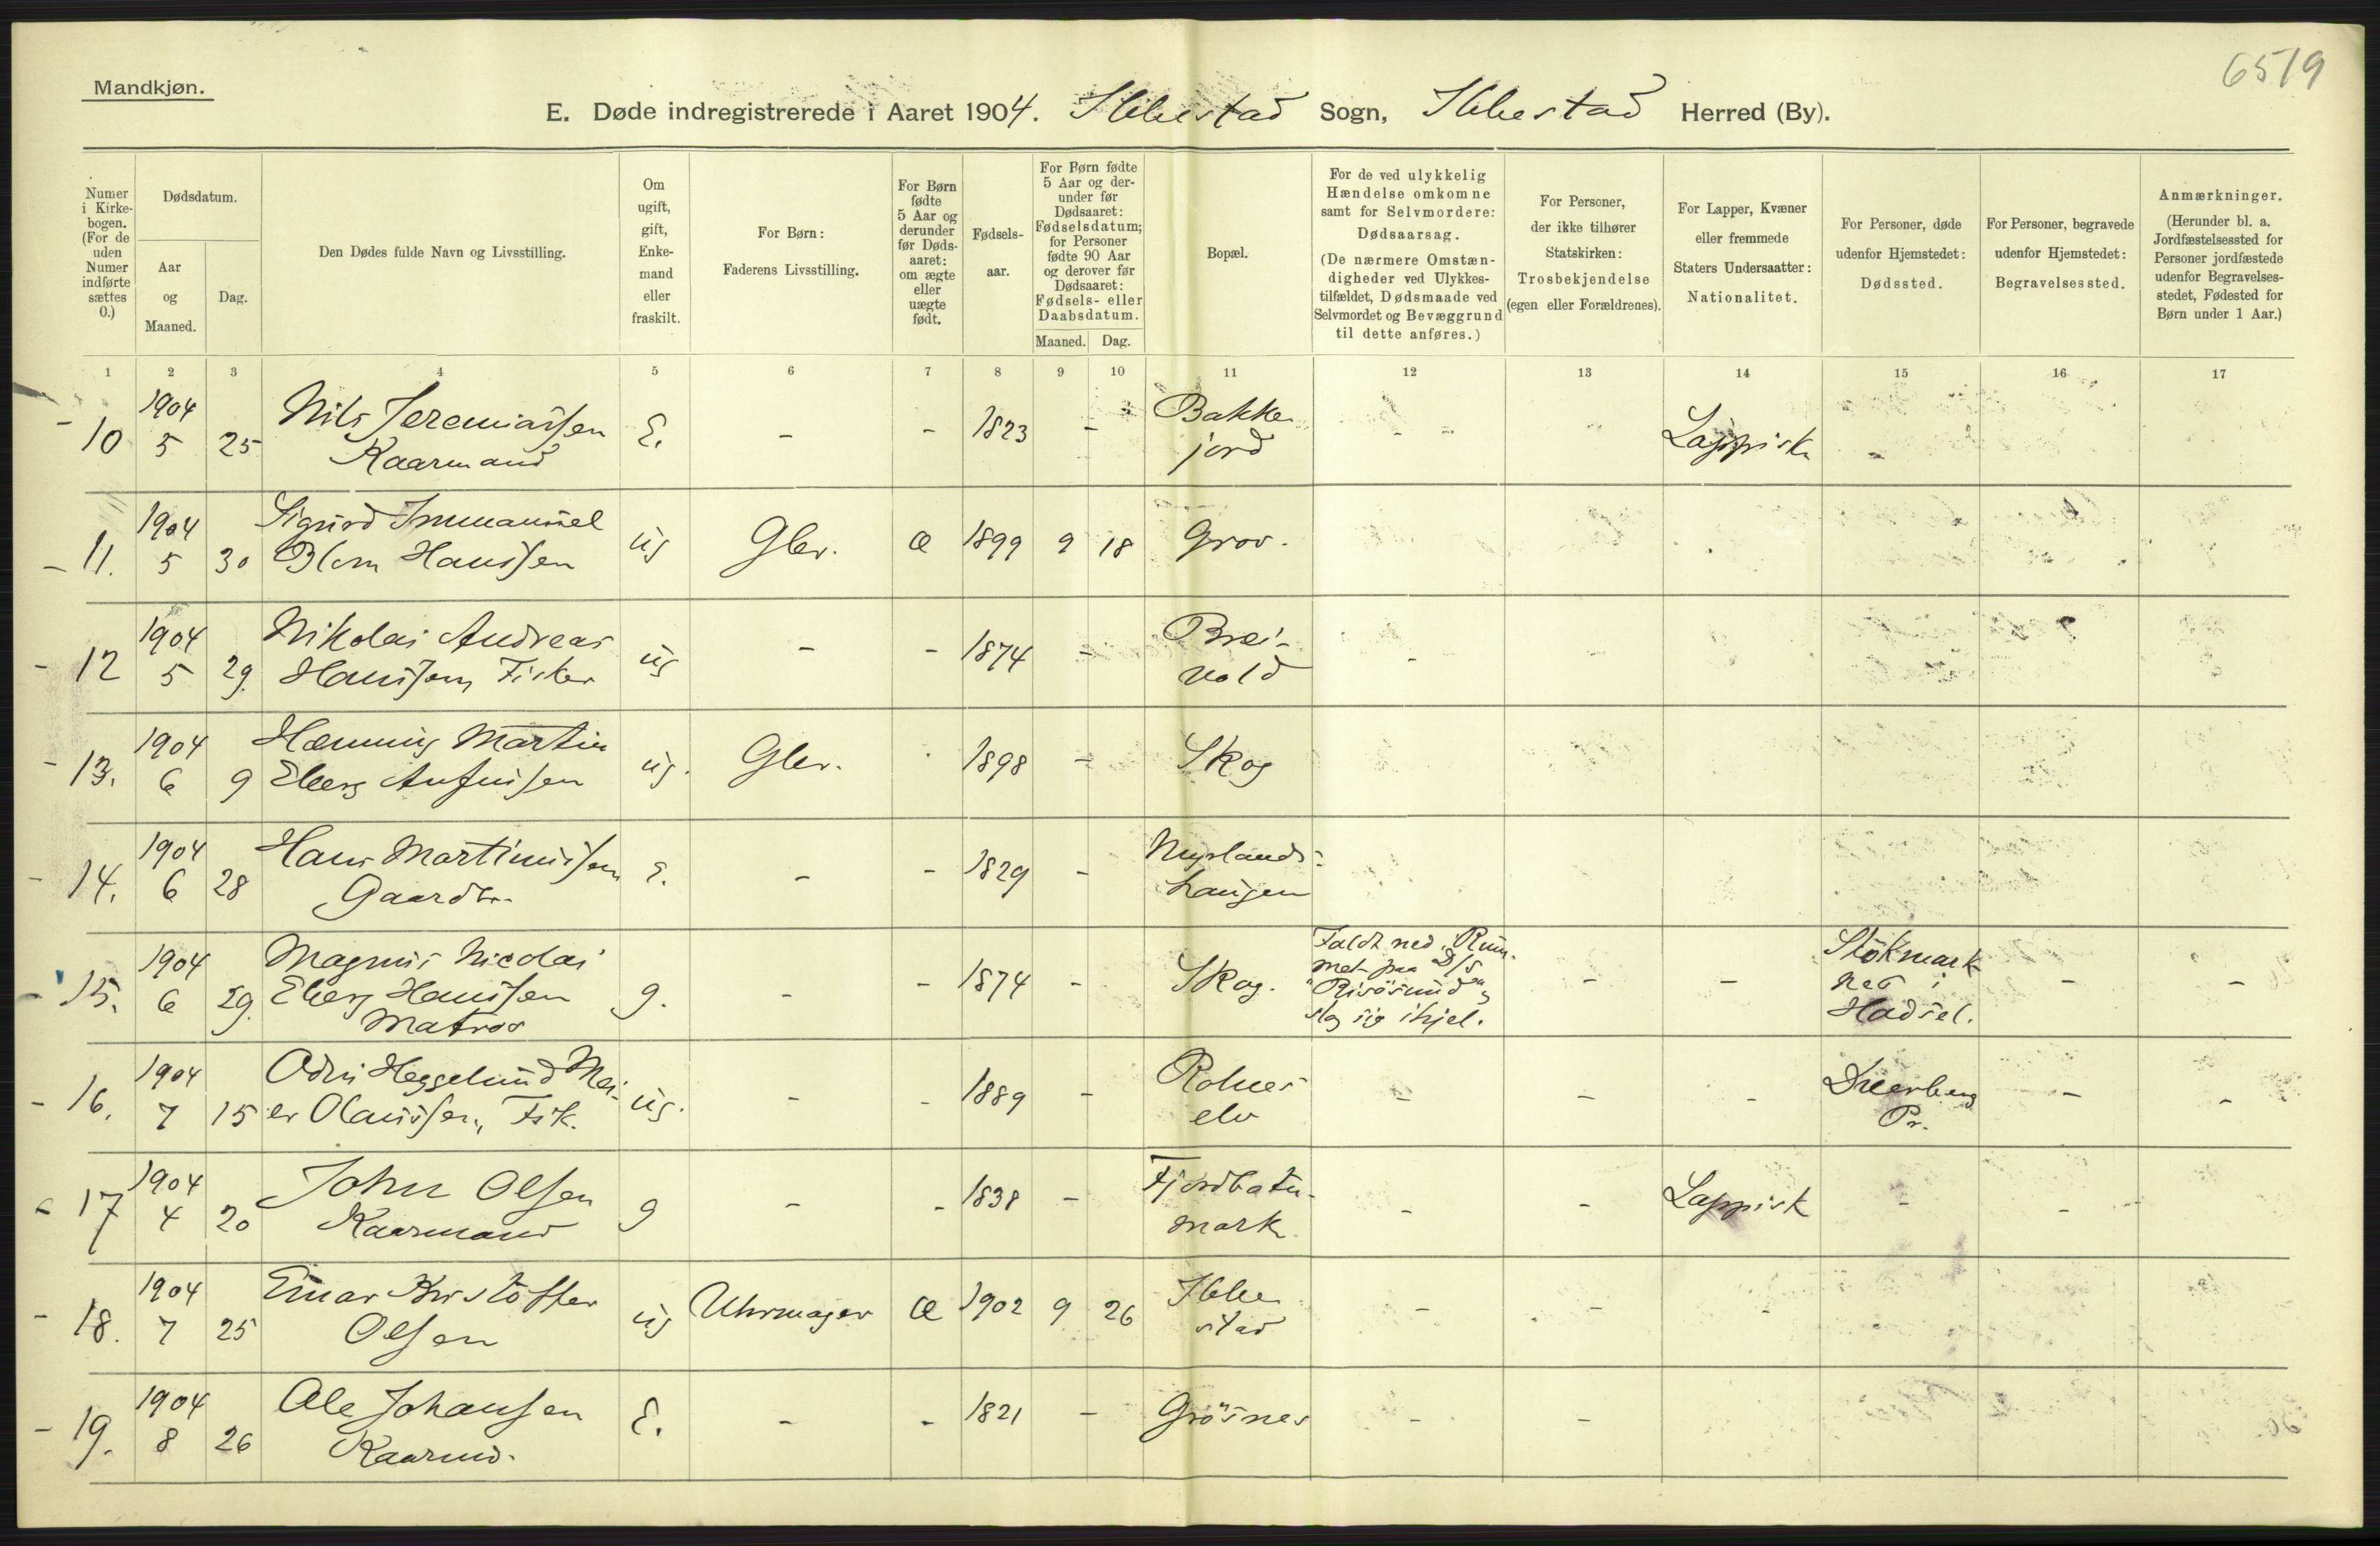 6519
Mandkjøn.
E. Døde indregistrerede i Aaret 1904. Ibbestad Sogn, Ibbestad Herred (By).
Numer
i Kirke-
bogen.
(For de
uden
Numer
indførte
sættes
0.)
Dødsdatum.
Aar
og
Maaned.
Dag.
Den Dødes fulde Navn og Livsstilling.
Om
ugift,
gift,
Enke-
mand
eller
fraskilt.
For Børn:
Faderens Livsstilling.
For Børn
fødte
5 Aar og
derunder
før Døds-
aaret:
om ægte
eller
uægte
født.
Fødsels-
aar.
For Børn fødte
5 Aar og der-
under før
Dødsaaret:
Fødselsdatum;
for Personer
fødte 90 Aar
og derover før
Dødsaaret:
Fødsels- eller
Daabsdatum.
Maaned. Dag.
Bopæl.
For de ved ulykkelig
Hændelse omkomne
samt for Selvmordere:
Dødsaarsag.
(De nærmere Omstæn-
digheder ved Ulykkes-
tilfældet, Dødsmaade ved
Selvmordet og Bevæggrund
til dette anføres.)
For Personer,
der ikke tilhører
Statskirken:
Trosbekjendelse
(egen eller Forældrenes).
For Lapper, Kvæner
eller fremmede
Staters Undersaatter:
Nationalitet.
For Personer, døde
udenfor Hjemstedet:
Dødssted.
For Personer, begravede
udenfor Hjemstedet:
Begravelsessted.
Anmærkninger.
(Herunder bl. a.
Jordfæstelsessted for
Personer jordfæstede
udenfor Begravelses-
stedet, Fødested for
Børn under 1 Aar.)
1 2 3 4 5 6 7 8 9 10 11 12 13 14 15 16 17
1904 Nils Jeremiassen Bakke
10 5 25 Kaarmand E. - - 1823 - jord - - Lappisk -
1904 Sigurd Immanuel
11. 5 30 Blom Hanssen ug Gbr. Æ 1899 9 18 Grov.
1904 Nikolai Andreas Brei-
12 5 29. Hanssen, Fisker ug - - 1874 - vold -
1904 Hemming Martin
13. 6 9 Eberg Anfinsen ug. Gbr. 1898 - Skog
1904 Hans Martinussen Myrlands-
14. 6 28 Gaardbr. E. - - 1829 - haugen
1904 Magnus Nicolai
15. 6 29. Eberg Hanssen g. - - 1874 - Skog.
Matros
Faldt ned i Rum-
met paa D/S
"Risøsund" og
slog sig ihjel.
- - Stokmark
nes i
Hadsel. - -
1904 Odin Heggelund Mei- Rolnes
16. 7 15 er Olaussen, Fisk. ug. - - 1889 - elv - - - Pr. - -
1904 John Olsen Fjordbotn-
17 4 20 Kaarmand g - - 1838 - mark - - Lappisk - -
1904 Einar Kristoffer Ibbe
18. 7 25 Olsen ug Uhrmager Æ 1902 9 26 stad - - -
1904 Ole Johansen
19. 8 26 Kaarmd. E. - - 1821 - Grösnes - -